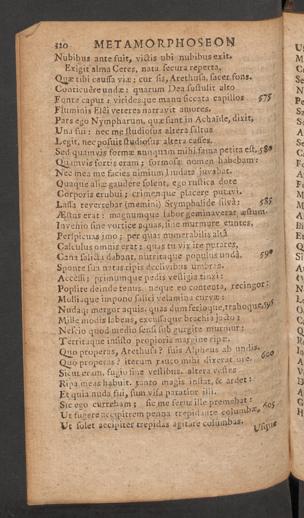 320 METAMORPHOSEON
Nubibus ante suit, victis ubi nubibus exit.
Exigit alma Ceres, nata secura reperta,
Quæ tibi caussa viæ; cur sis, Arethusa, sacer fons.
Conticuêre undæ: quarum Dea sustulit alto
Fonte caput: viridesque manu siccata capillos 575
Fluminis Elêi veteres narravit amores.
Pars ego Nympharum, quæ sunt in Achaïde, dixit,
Una fui: nec me studiosius altera saltus
Legit, nec posuit studiosius altera casses.
Sed quamvis formæ nunquam mihi fama petita est, 580
Quamvis fortis eram; formosæ nomen habebam:
Nec mea me facies nimium laudata juvabat.
Quaque aliæ gaudere solent, ego rustica dote
Corporis erubui; crimenque placere putavi.
Lassa revertebar (memini) Stymphalide silvâ: 585
Æstus erat: magnumque labor geminaverat æstum.
Invenio sine vortice aquas, sine murmure euntes,
Perspicuas imo; per quas numerabilis altè
Calculus omnis erat: quas tu vix ire putares,
Cana salicta dabant, nutritaque populus undâ, 590
Sponte sua natas ripis declivibus umbras.
Accessi; primumque pedis vestigia tinxi:
Poplite deinde tenus. neque eo contenta, recingor:
Molliaque impono salici velamina curvæ:
Nudaque mergor aquis; quas dum ferioque, trahoque, 595
Mille modis labens, excussaque brachia jacto;
Nescio quod medio sensi sub gurgite murmur:
Territaque insisto propioris margine ripæ.
Quo properas, Arethusa? suis Alpheus ab undis.
Quo properas? iterum rauco mihi dixerat ore. 600
Sicut eram, fugio sine vestibus. altera vestes
Ripa meas habuit. tanto magis instat, & ardet:
Et quia nuda fui, sum visa paratior illi.
Sic ego currebam; sic me ferus ille premebat:
Ut fugere accipitrem penna trepidante columbæ, 605
Ut solet accipiter trepidas agitare columbas.
Usque